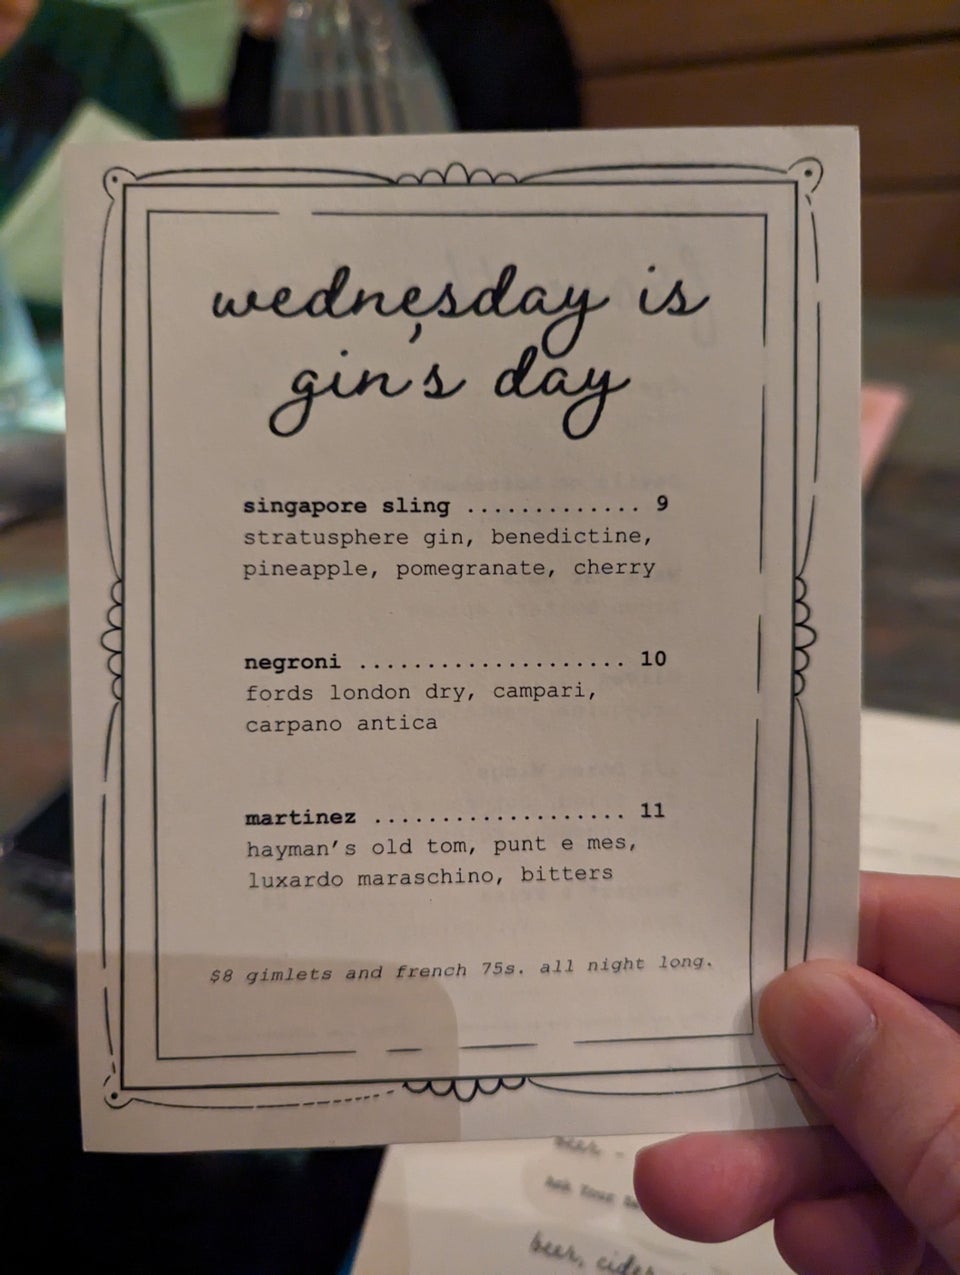 wednesday is
gin's day
singapore sling ............. 9
stratusphere gin, benedictine,
pineapple, pomegranate, cherry
negroni .................... 10
fords london dry, campari,
carpano antica
martinez ................... 11
hayman's old tom, punt e mes,
luxardo maraschino, bitters
$8 gimlets and french 75s. all night long.
beer -
beer, cider